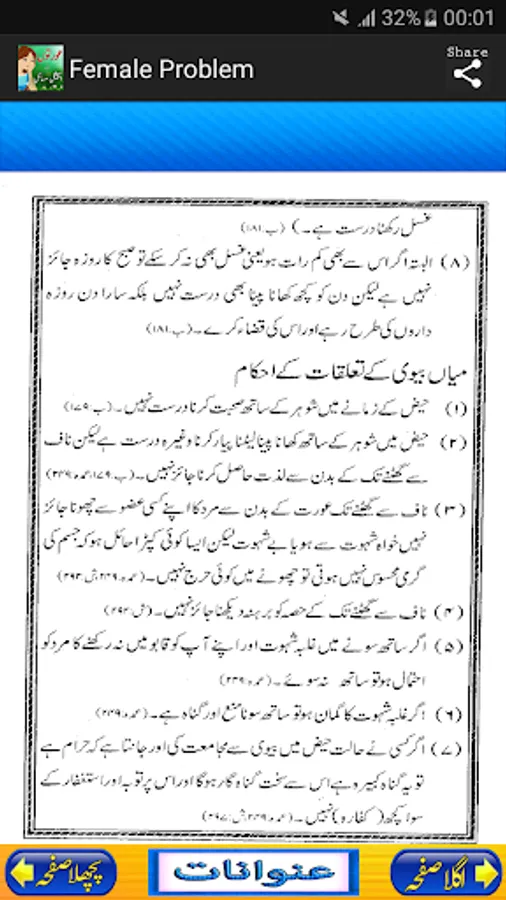 32% 00:01
Female Problem
Share
غسل رکھنا درست ہے۔) (ب:۱۸۱)
(۸) البتہ اگر اس سے بھی کم رات ہو یعنی غسل بھی نہ کر سکے تو صبح کا روزہ جائز
نہیں ہے لیکن دن کو کچھ کھانا پینا بھی درست نہیں بلکہ سارا دن روزہ
داروں کی طرح رہے اور اس کی قضاء کرے۔ (ب:۱۸۱)
میاں بیوی کے تعلقات کے احکام
(۱) حیض کے زمانے میں شوہر کے ساتھ صحبت کرنا درست نہیں۔ (ب:۱۷۹)
(۲) حیض میں شوہر کے ساتھ کھانا پینا لیٹنا پیار کرنا وغیرہ درست ہے لیکن ناف
سے گھٹنے تک کے بدن سے لذت حاصل کرنا جائز نہیں۔ (ب:۱۷۹، عمدہ:۲۳۹)
(۳) ناف سے گھٹنے تک عورت کے بدن سے مرد کا اپنے کسی عضو سے چھونا جائز
نہیں خواہ شہوت سے ہو یا بے شہوت لیکن ایسا کوئی کپڑا حائل ہو کہ جسم کی
گرمی محسوس نہیں ہوتی تو چھونے میں کوئی حرج نہیں۔ (عمدہ:۲۳۹، ش:۲۹۲)
(۴) ناف سے گھٹنے تک کے حصہ کو برہنہ دیکھنا جائز نہیں۔ (ش:۲۹۲)
(۵) اگر ساتھ سونے میں غلبہ شہوت اور اپنے آپ کو قابو میں نہ رکھنے کا مرد کو
احتمال ہو تو ساتھ نہ سوئے۔ (عمدہ:۲۳۹)
(۶) اگر غلبہ شہوت کا گمان ہو تو ساتھ سونا منع اور گناہ ہے۔ (عمدہ:۲۳۹)
(۷) اگر کسی نے حالت حیض میں بیوی سے مجامعت کی اور جانتا ہے کہ حرام ہے
تو یہ گناہ کبیرہ ہے اس سے سخت گناہ گار ہوگا اور اس پر توبہ اور استغفار کے
سوا کچھ (کفارہ) نہیں۔ (عمدہ:۲۳۹، ش:۲۹۷)
پچھلا صفحہ عنوانات اگلا صفحہ